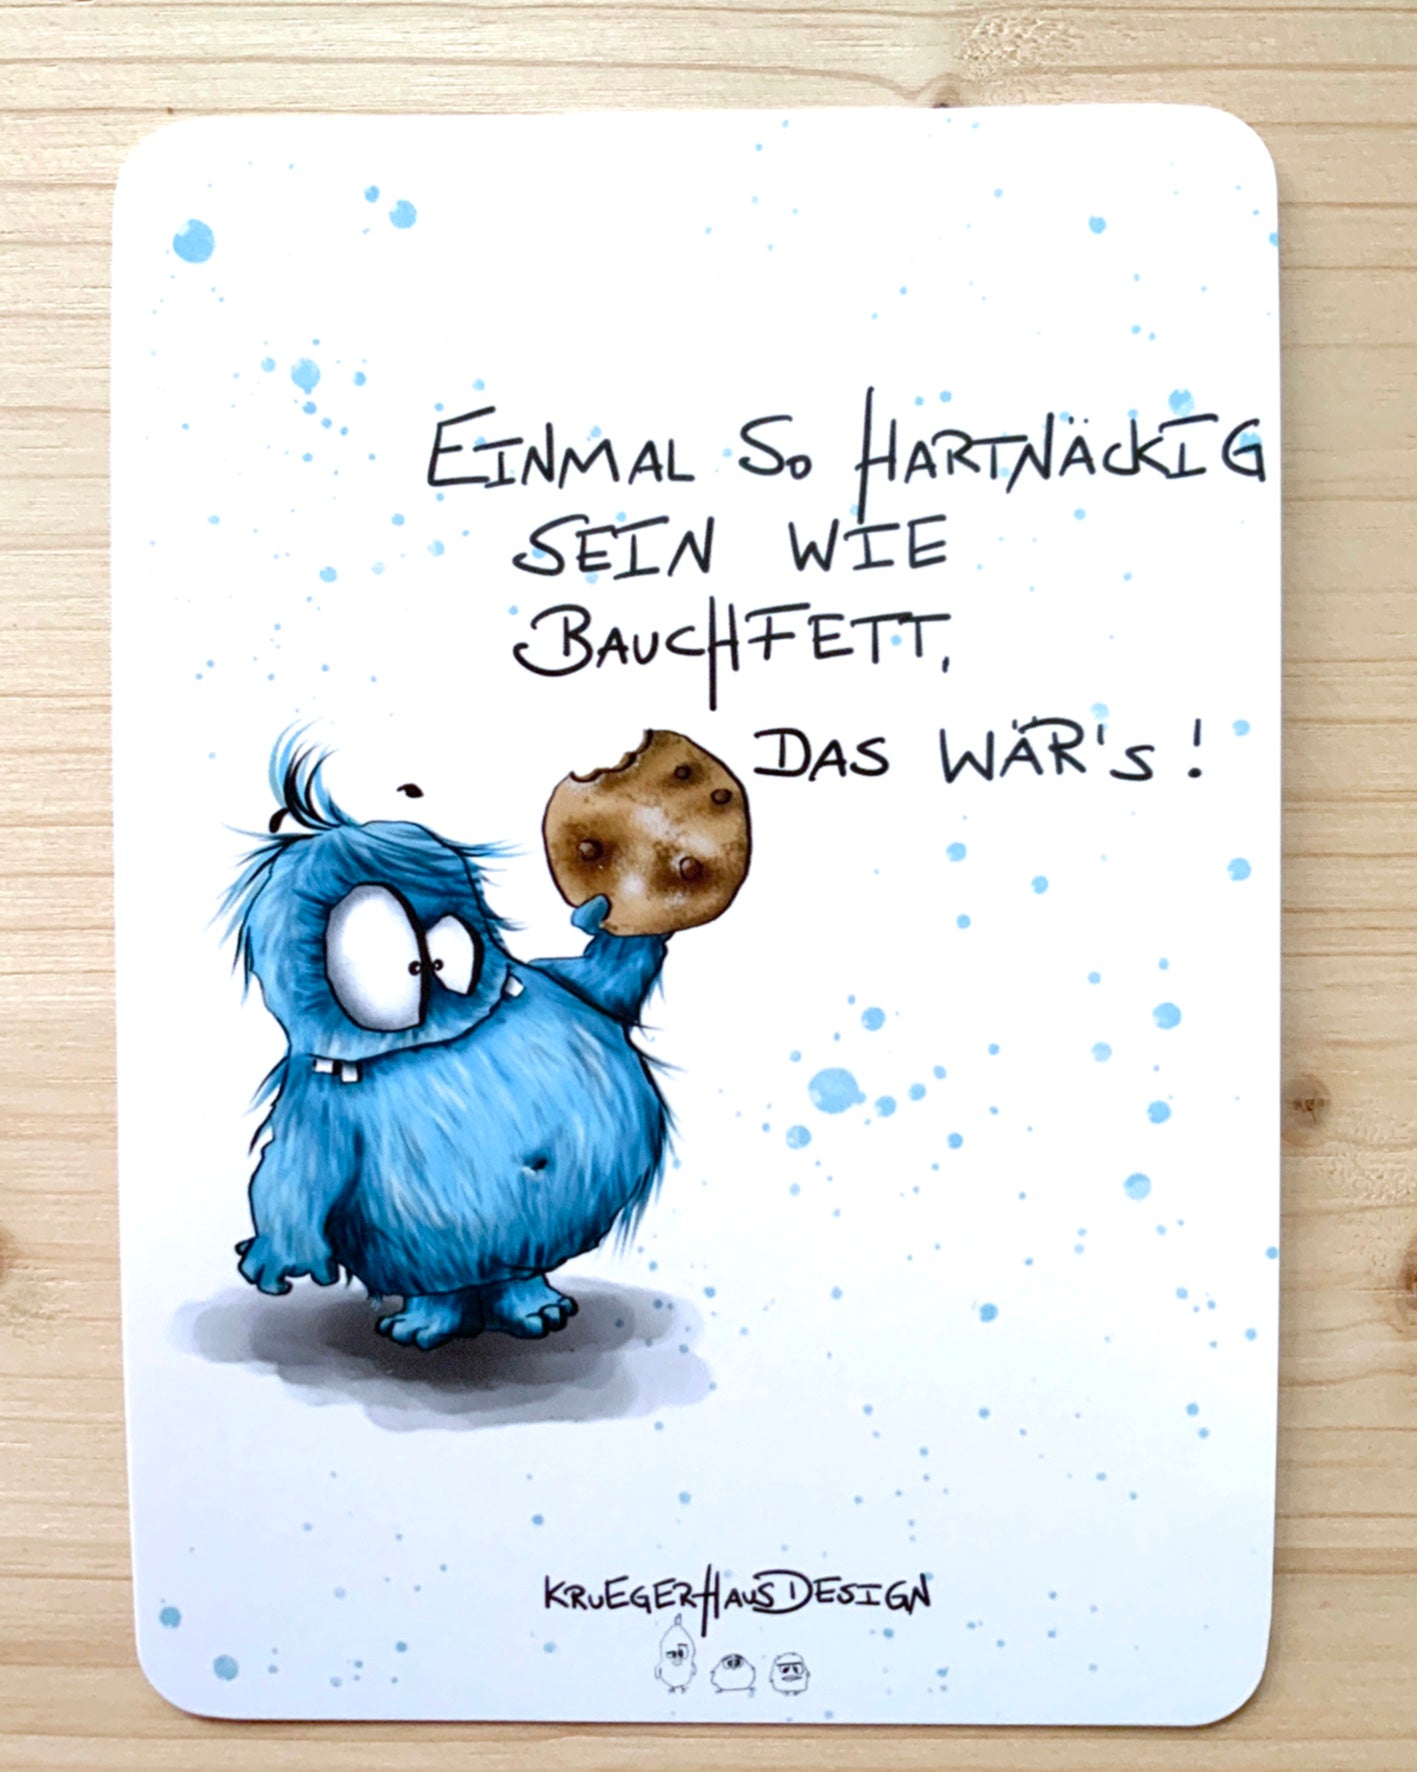 EINMAL SO HARTNÄCKIG
SEIN WIE
BAUCHFETT,
DAS WÄR'S!
KRUEGERHAUSDESIGN